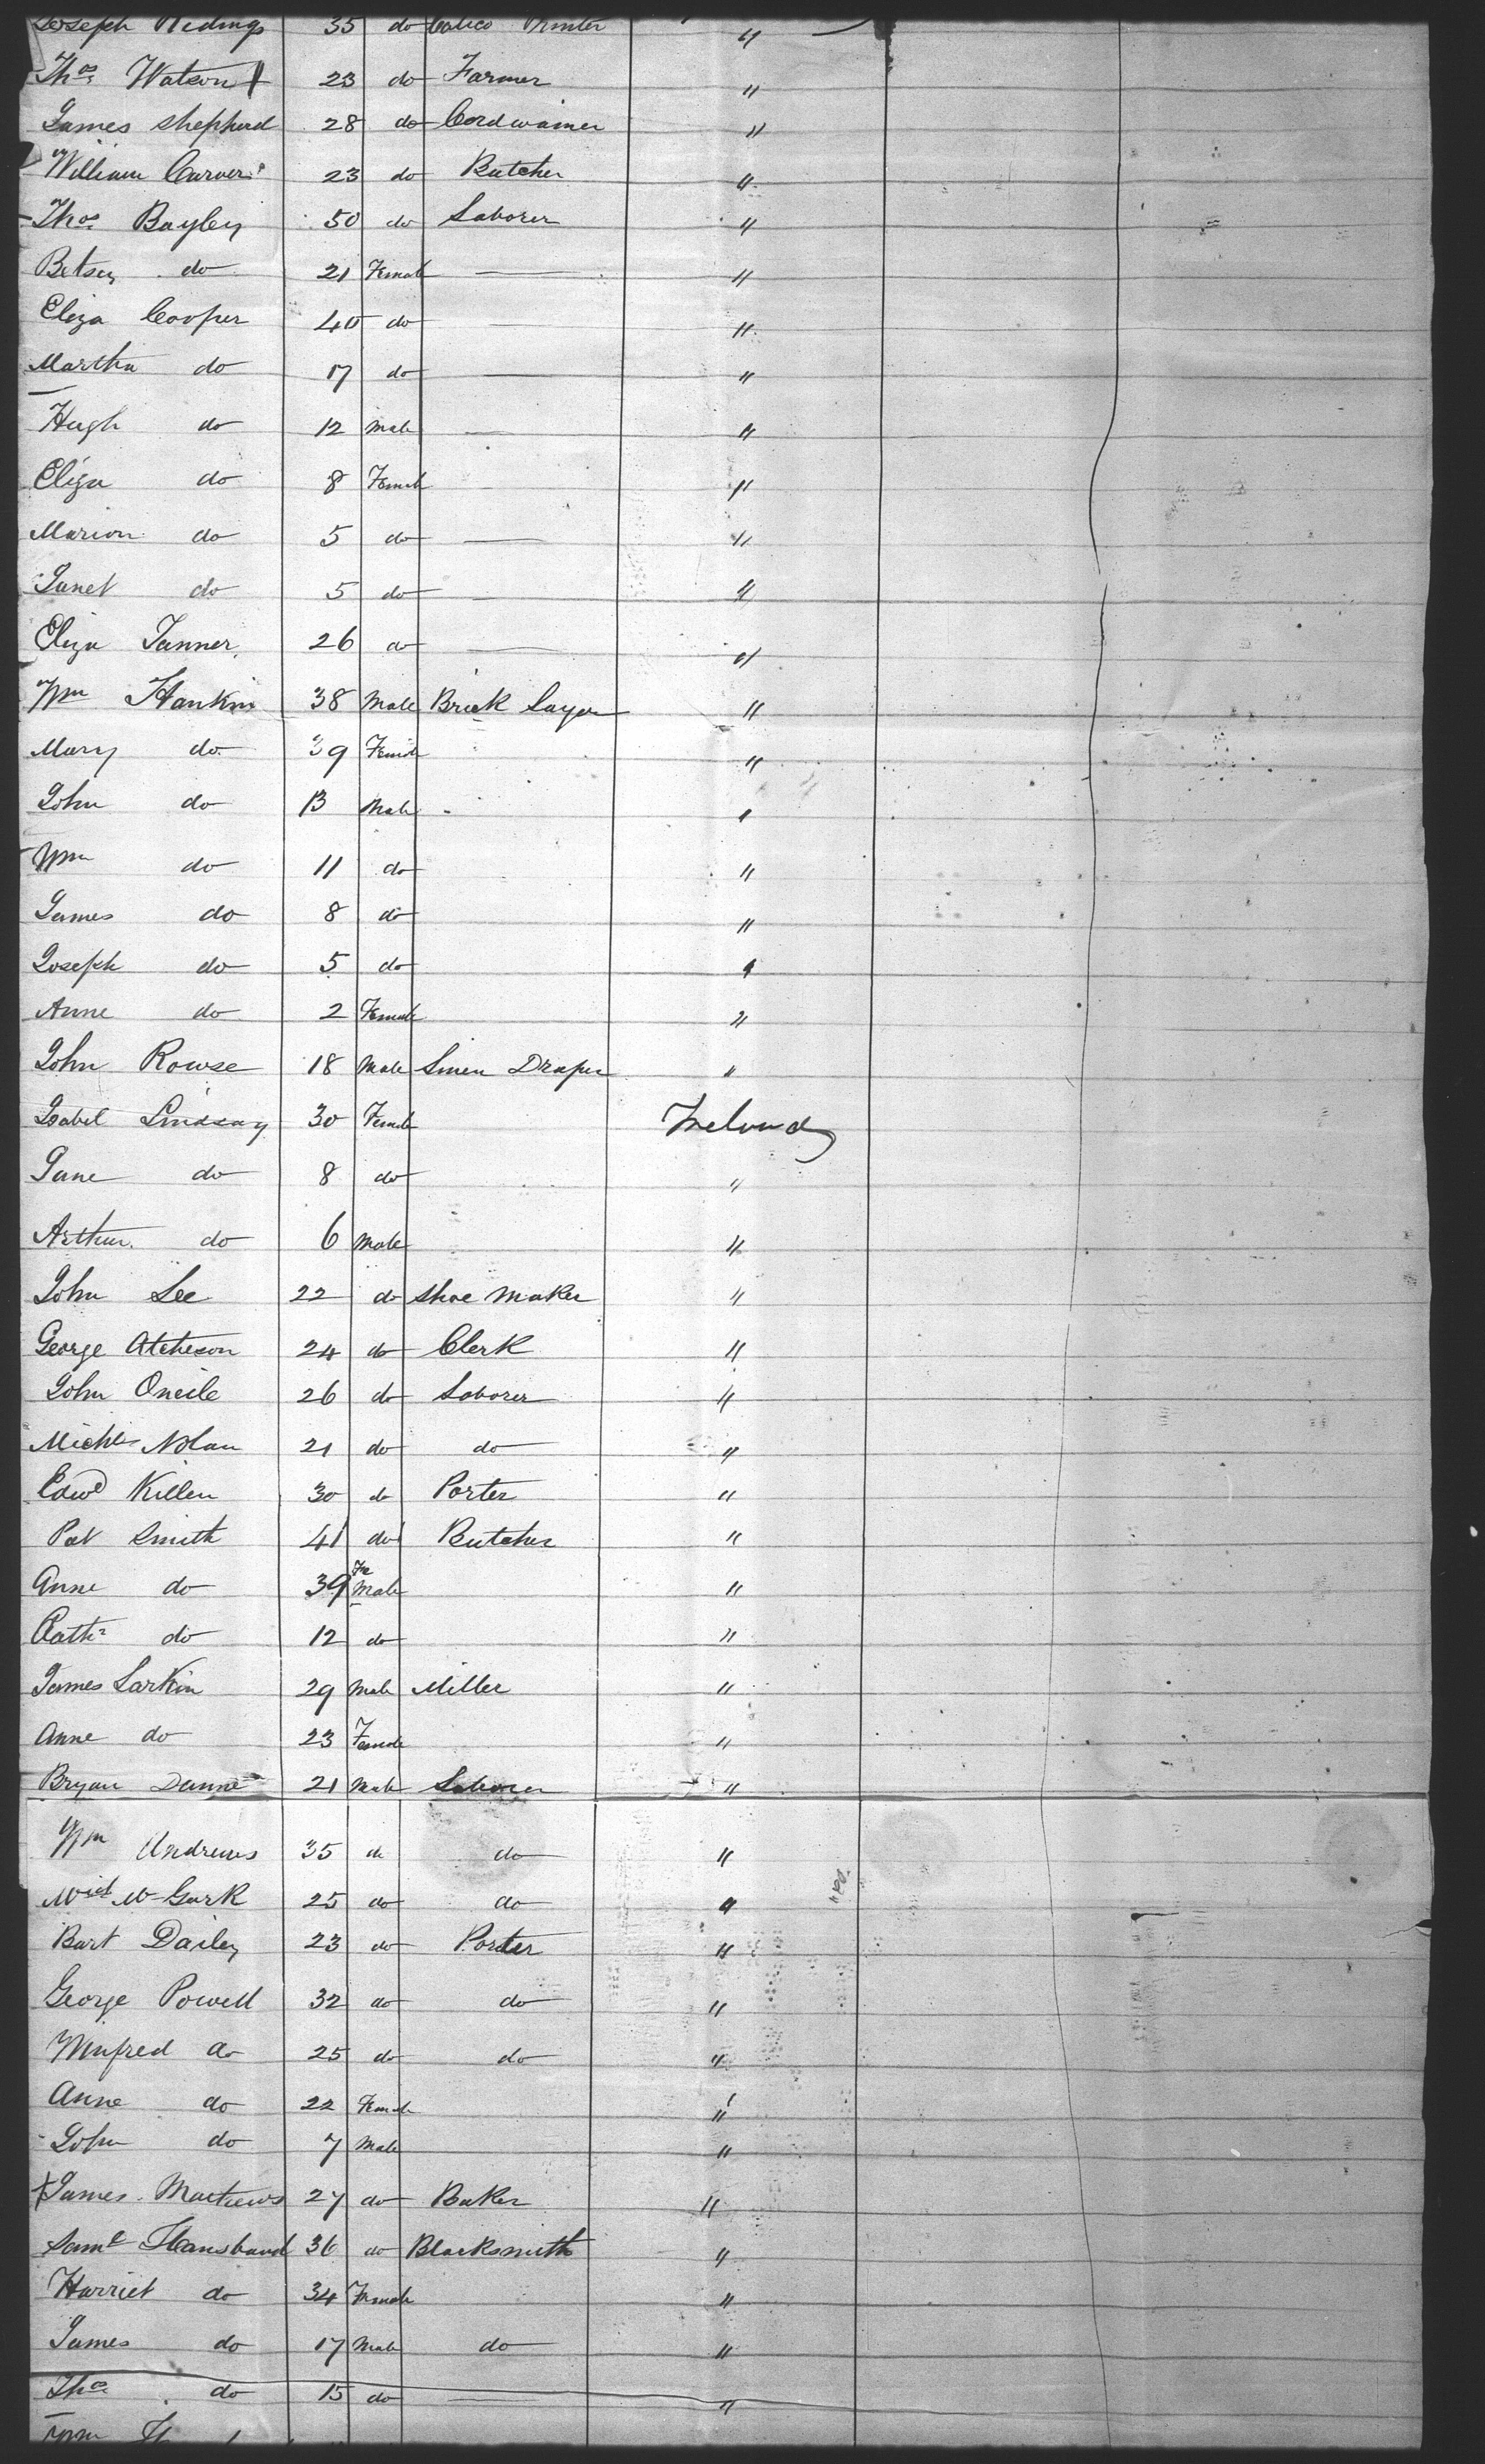 Joseph Ridings 35 do Calico Printer "
Thos Watson 23 do Farmer "
James Shepherd 28 do Cordwainer "
William Carver 23 do Butcher "
Thos Bayley 50 do Laborer "
Betsey do 21 Female — "
Eliza Cooper 40 do — "
Martha do 17 do — "
Hugh do 12 Male — "
Eliza do 8 Female "
Marion do 5 do — "
Janet do 5 do — "
Eliza Tanner 26 do — "
Wm Hankins 38 Male Brick Layer "
Mary do 39 Female "
John do 13 Male - "
Wm do 11 do "
James do 8 do "
Joseph do 5 do "
Anne do 2 Female "
John Rowse 18 Male Linen Draper "
Isabel Lindsay 30 Female Ireland
Jane do 8 do "
Arthur do 6 Male "
John Lee 22 do Shoe Maker "
George Atcheson 24 do Clerk "
John Oneile 26 do Laborer "
Michl Nolan 21 do do "
Edwd Killen 30 do Porter "
Pat Smith 41 do Butcher "
Anne do 39 Fe Male "
Cathe do 12 do "
James Larkin 29 Male Miller "
Anne do 23 Female "
Bryan Dunne 21 Male Laborer "
Wm Andrews 35 do do "
Micl McGurk 25 do do "
Bart Dailey 23 do Porter "
George Powell 32 do do "
Winfred do 25 do do "
Anne do 22 Female "
John do 7 Male "
James Mathews 27 do Baker "
Saml Hansband 36 do Blacksmith "
Harriet do 34 Female "
James do 17 Male do "
Thos do 15 do — "
Wm